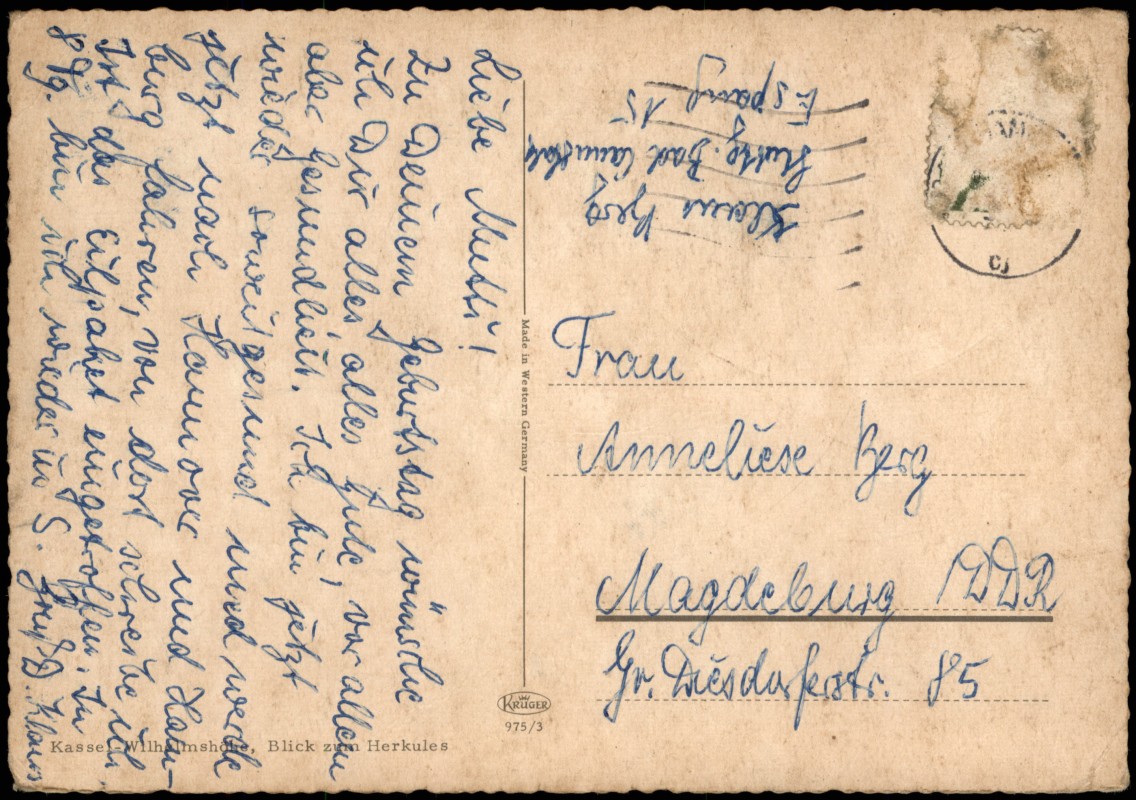 Liebe Mutti!
Zu Deinem Geburtstag wünsche
ich Dir alles alles Gute, vor allem
aber Gesundheit. Ich bin jetzt
wieder soweit gesund und werde
jetzt nach Hannover und Ham-
burg fahren, von dort schreibe ich.
Ist das Eilpaket eingetroffen. In
8 Tg. bin ich wieder in S. Gruß D. Klaus
Klaus Berg
Stuttg. Bad Cannstatt
15
Made in Western Germany
Frau
Anneliese Berg
Magdeburg /DDR
Gr. Diesdorferstr. 85
KRÜGER
975/3
Kassel-Wilhelmshöhe, Blick zum Herkules